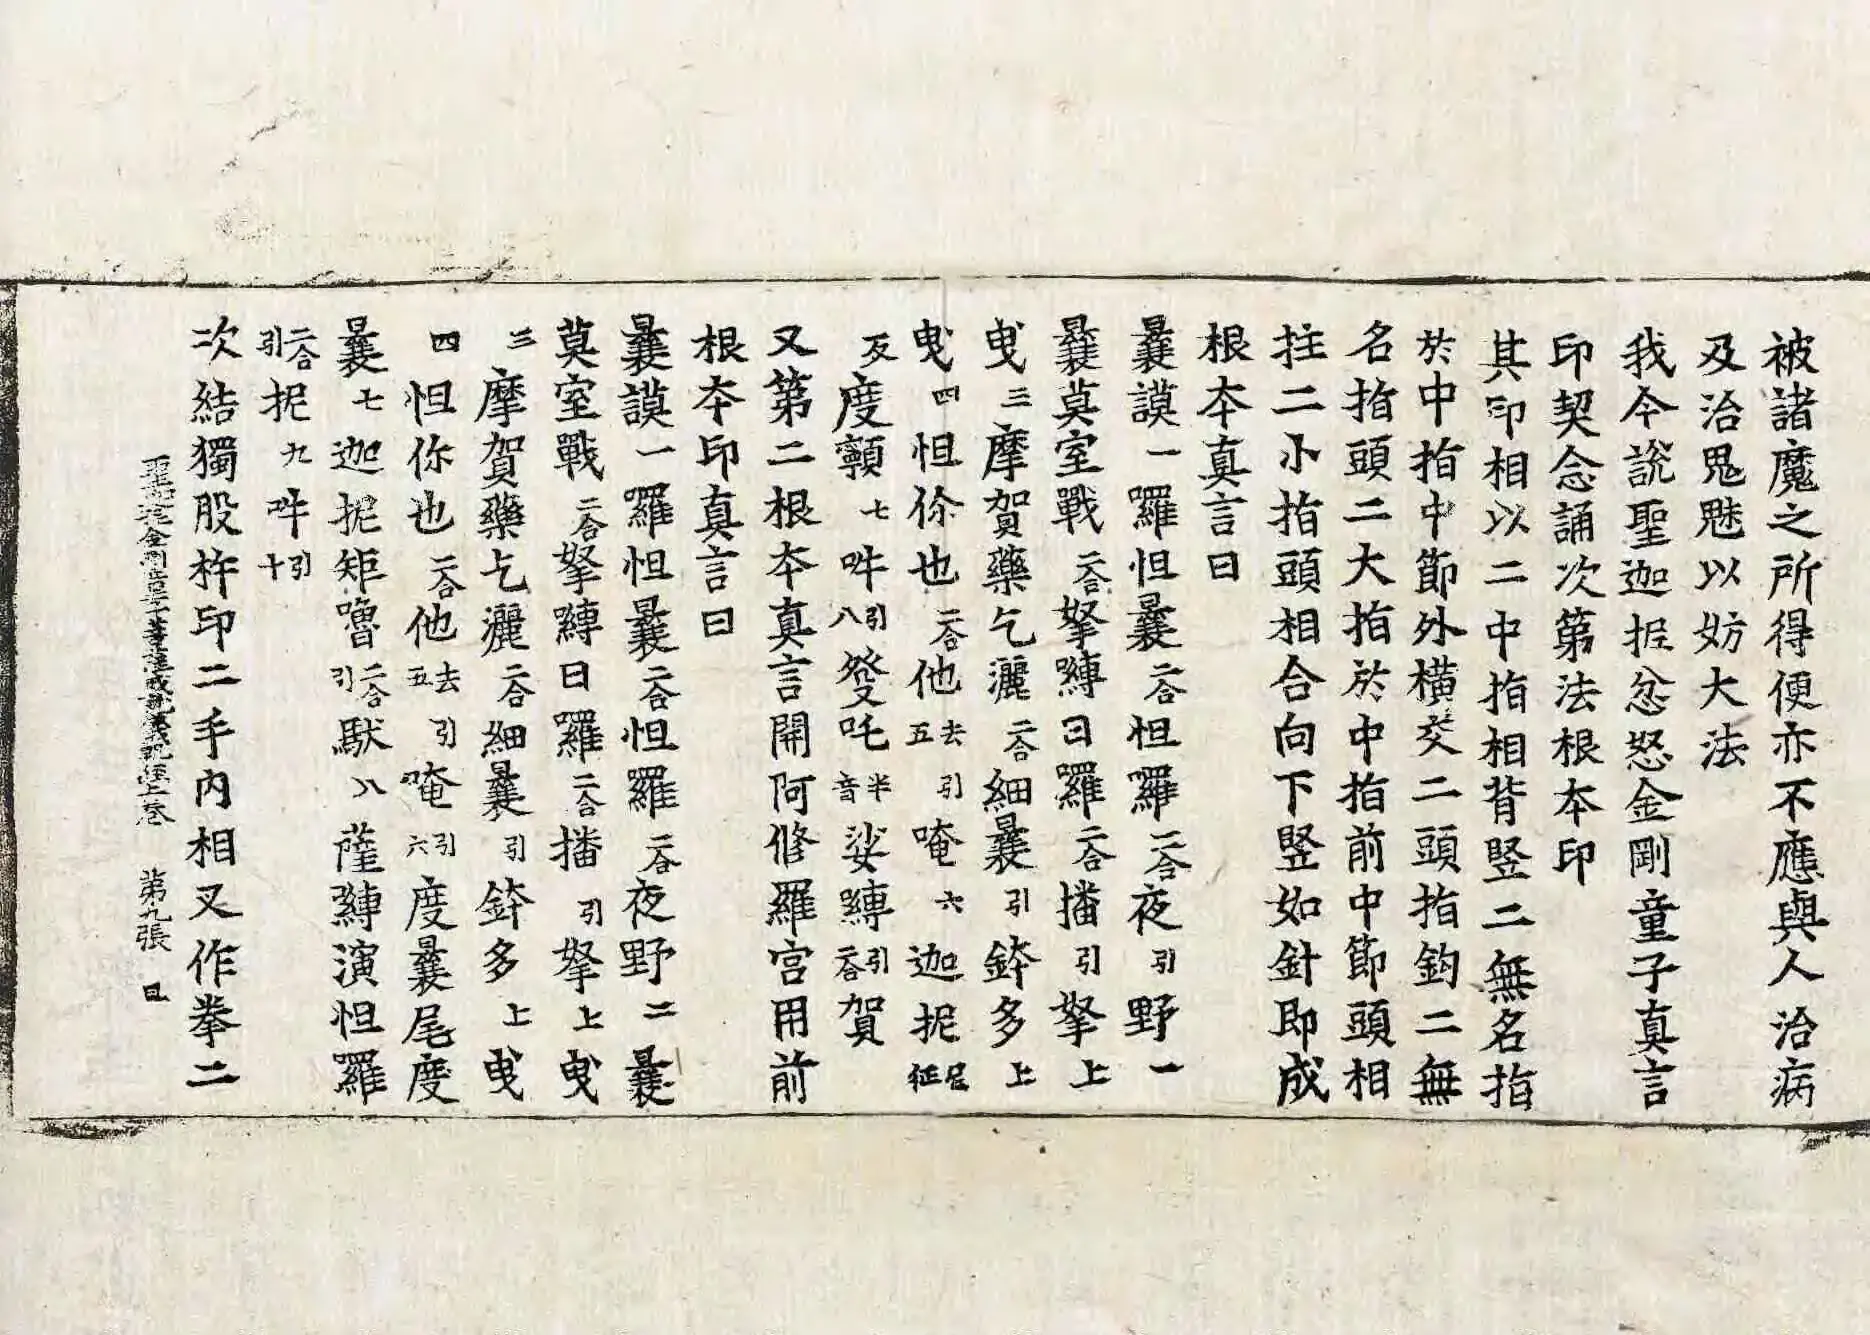 被諸魔之所得便亦不應與人治病
及治鬼魅以妨大法
我今說聖迦抳忿怒金剛童子真言
印契念誦次第法根本印
其印相以二中指相背竪二無名指
於中指中節外橫交二頭指鉤二無
名指頭二大指於中指前中節頭相
拄二小指頭相合向下竪如針即成
根本真言曰
曩謨一囉怛曩二合怛羅二合夜引野一
曩莫室戰二合拏嚩日羅二合播引拏上
曳三摩賀藥乞灑二合細曩引鉢多上
曳四怛你也二合他去五引唵六迦抳尼征
反度顐七吽引八發吒半音娑嚩引二合賀
又第二根本真言開阿修羅宮用前
根本印真言曰
曩謨一囉怛曩二合怛羅二合夜野二曩
莫室戰二合拏嚩日羅二合播引拏上曳
三摩賀藥乞灑二合細曩引鉢多上曳
四怛你也二合他去五引唵引六度曩尾度
曩七迦抳矩嚕二合引馱八薩嚩演怛羅
二合引抳九吽引十
聖迦抳金剛童子菩薩成就儀軌經上卷　第九張
次結獨股杵印二手內相叉作拳二